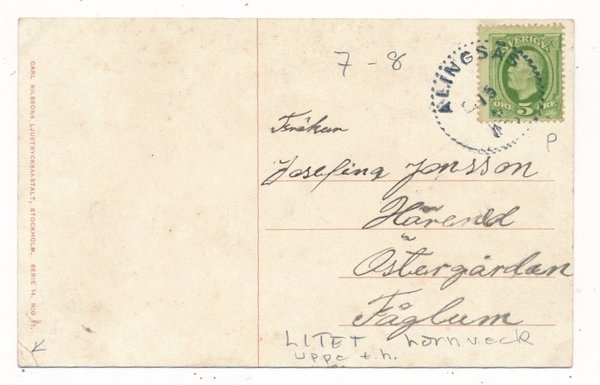 CARL NILSSONS LJUSTRYCKSANSTALT, STOCKHOLM. SERIE 14, N:O 21.
7-8
ALINGSÅS
15
SVERIGE
ÖRE 5 ÖRE
P
Fröken
Josefina Jonsson
Härened
Östergården
Fåglum
LITET hörnveck
uppe t.h.